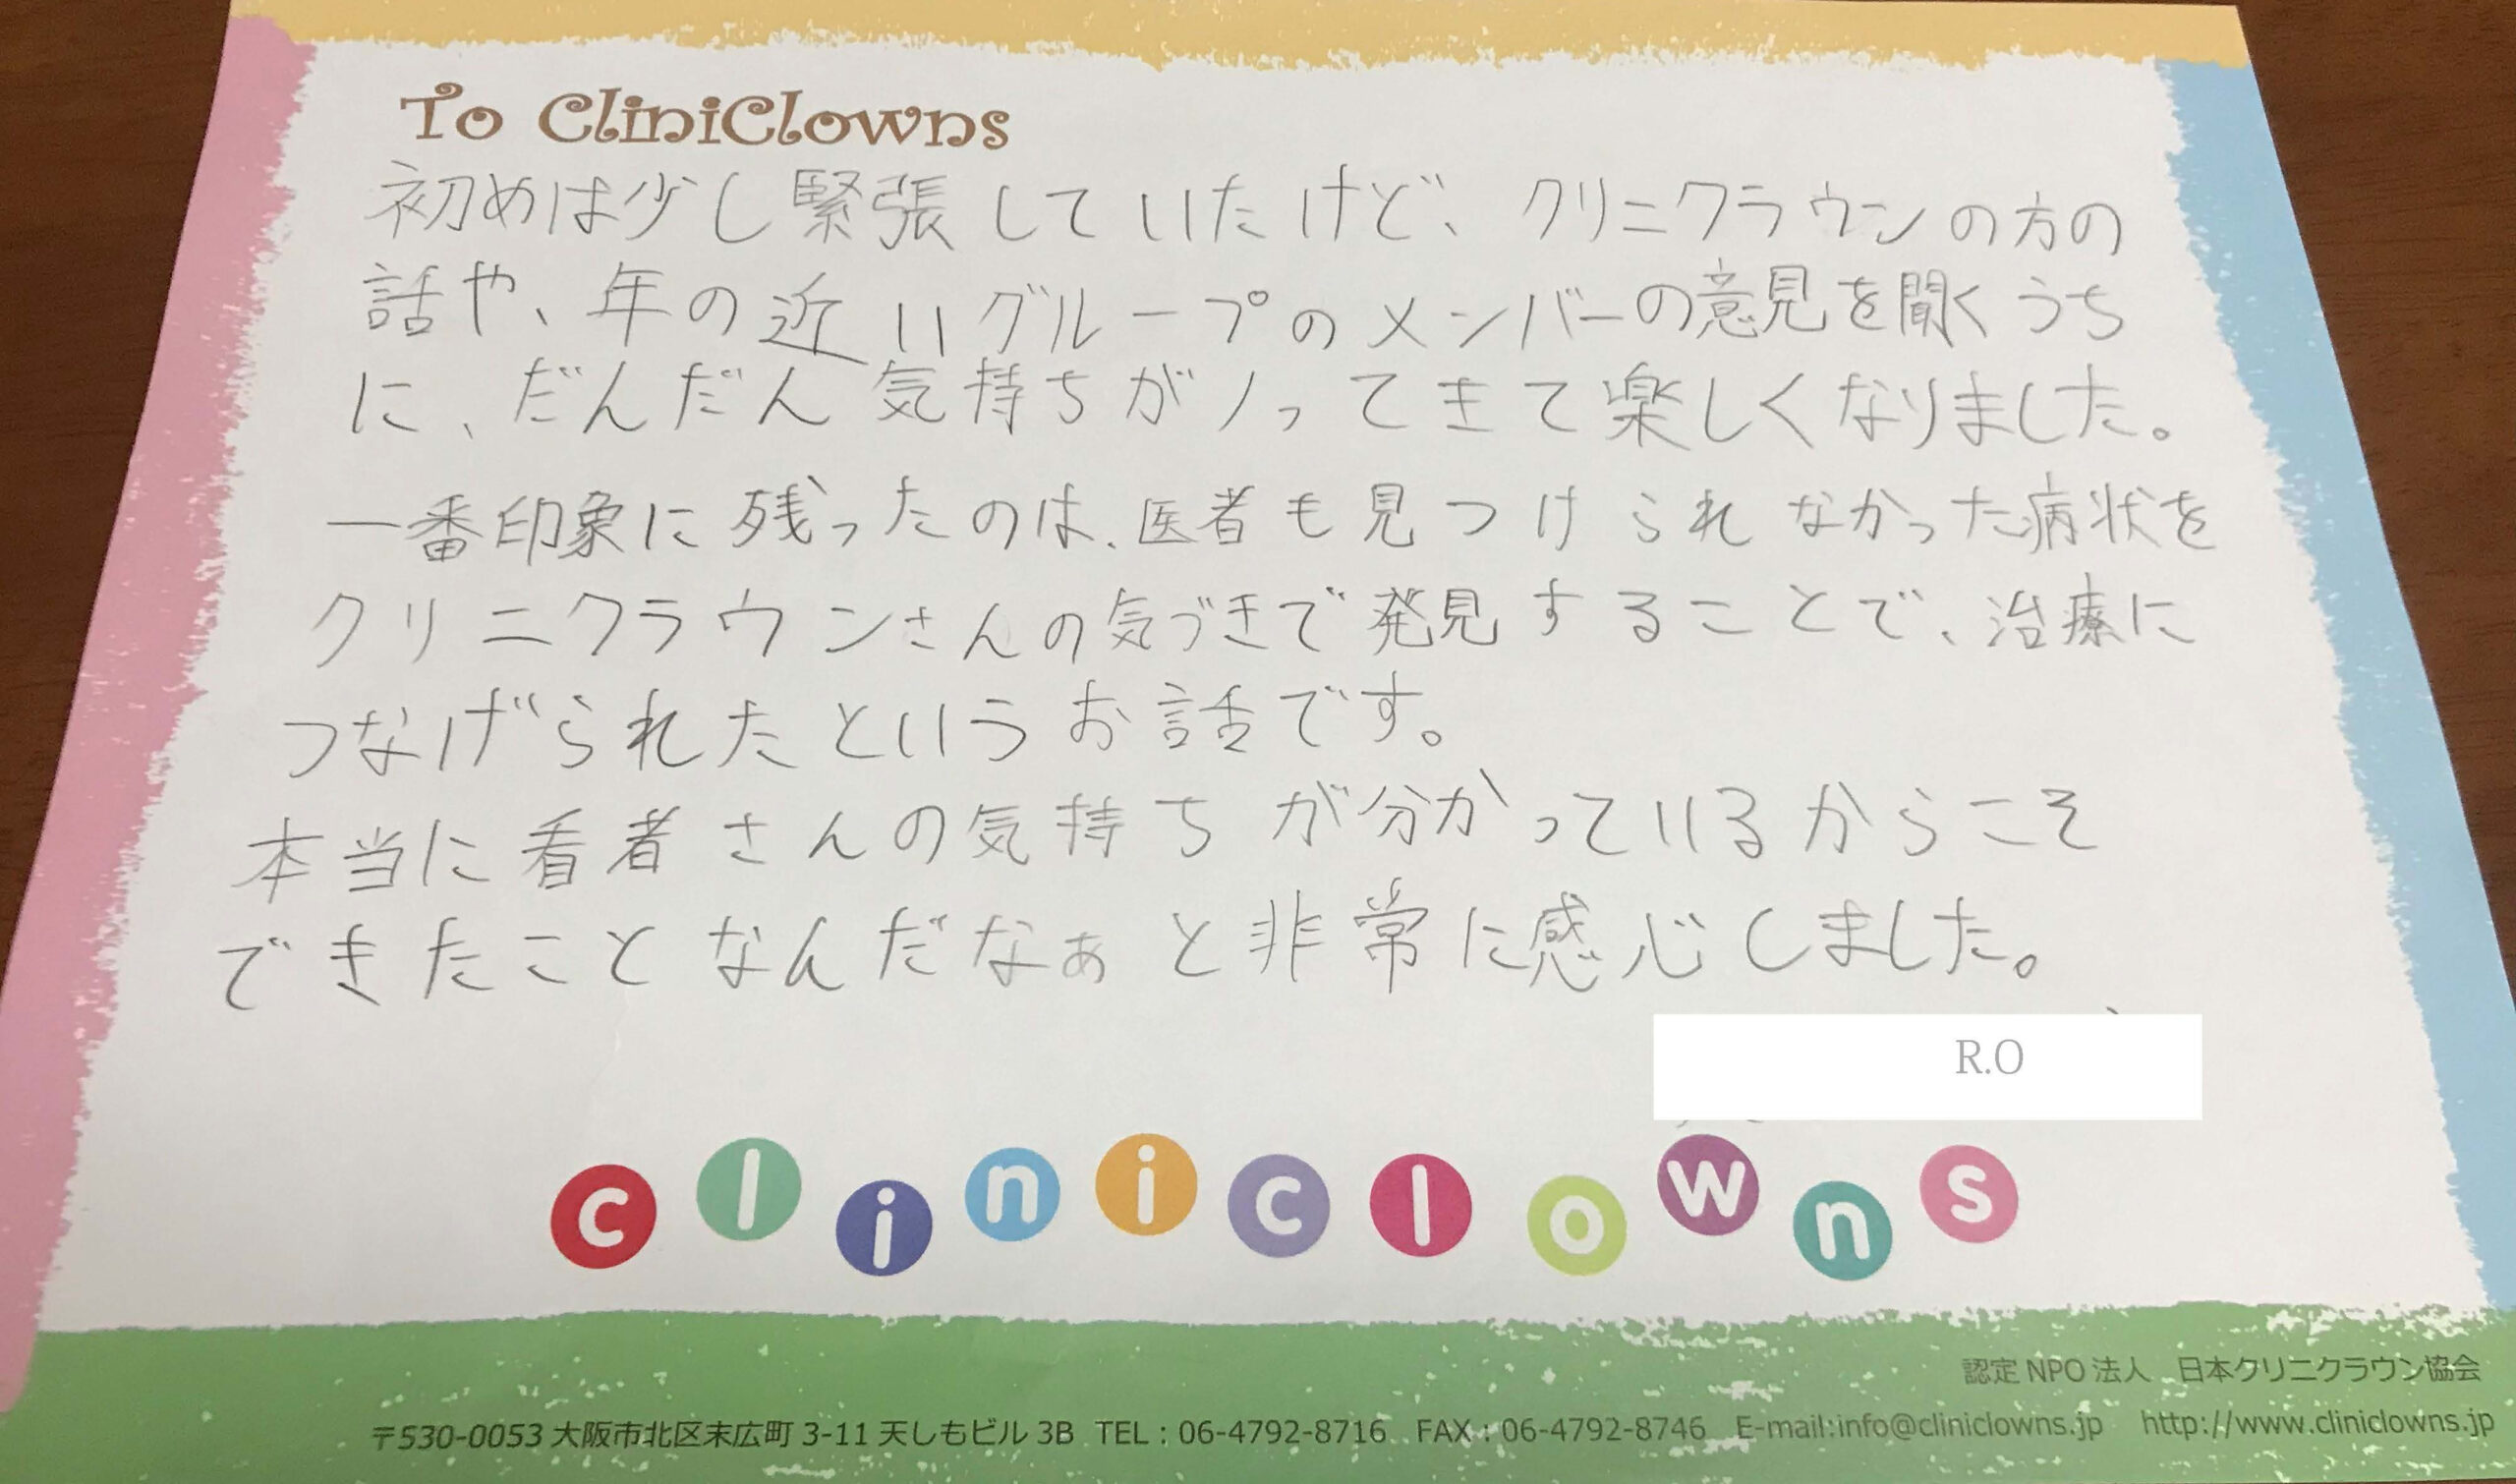 To CliniClowns
初めは少し緊張していたけど、クリニクラウンの方の
話や、年の近いグループのメンバーの意見を聞くうち
に、だんだん気持ちがノってきて楽しくなりました。
一番印象に残ったのは、医者も見つけられなかった病状を
クリニクラウンさんの気づきで発見することで、治療に
つなげられたというお話です。
本当に看者さんの気持ちが分かっているからこそ
できたことなんだなぁと非常に感心しました。
R.O
cliniclowns
認定NPO法人 日本クリニクラウン協会
〒530-0053 大阪市北区末広町 3-11 天しもビル 3B TEL : 06-4792-8716 FAX : 06-4792-8746 E-mail:info@cliniclowns.jp http://www.cliniclowns.jp